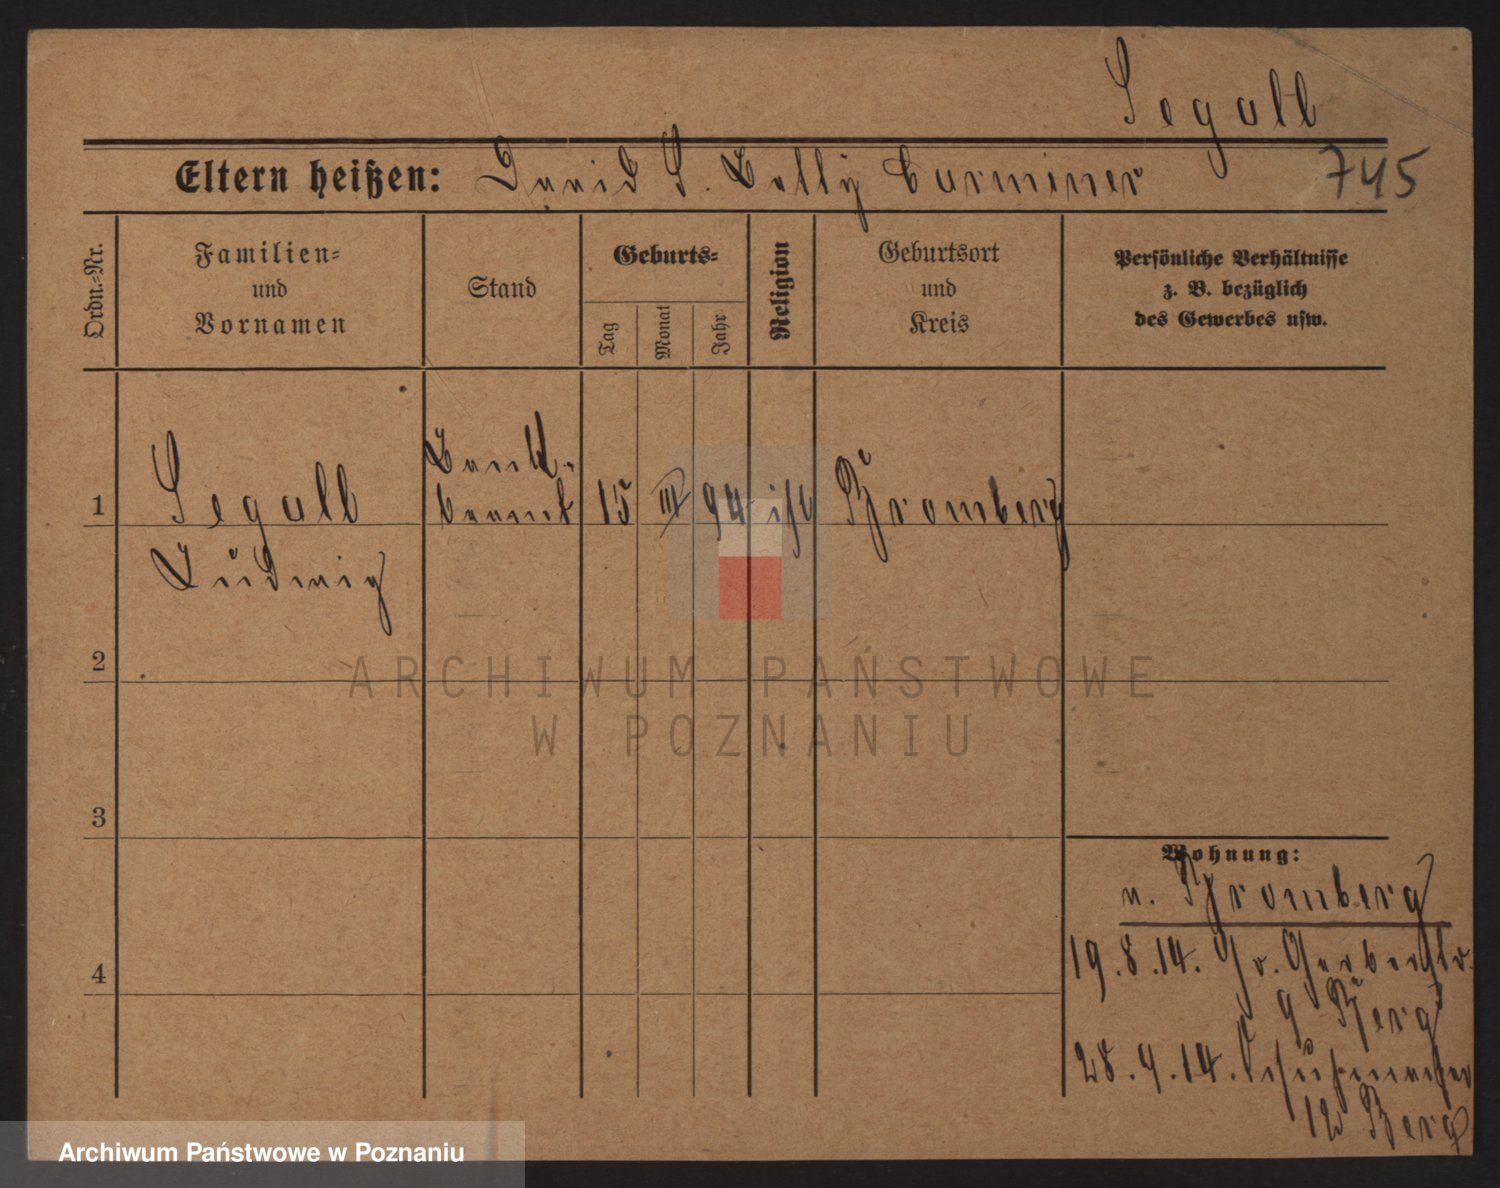 Segall
Eltern heißen: David S. Belly Corminer 745
Ordn.-Nr.
Familien-
und
Vornamen
Stand
Geburts-
Tag
Monat
Jahr
Religion
Geburtsort
und
Kreis
Persönliche Verhältnisse
z. B. bezüglich
des Gewerbes usw.
Bank-
1 Segall beamt 15 III 94 isr Bromberg
Ludwig
2
ARCHIWUM PAŃSTWOWE
W POZNANIU
3
Wohnung:
v. Bromberg
19.8.14. Gr. Gerberstr.
9 Berg
4
28.9.14. Schuhmacher
12 Berg
Archiwum Państwowe w Poznaniu